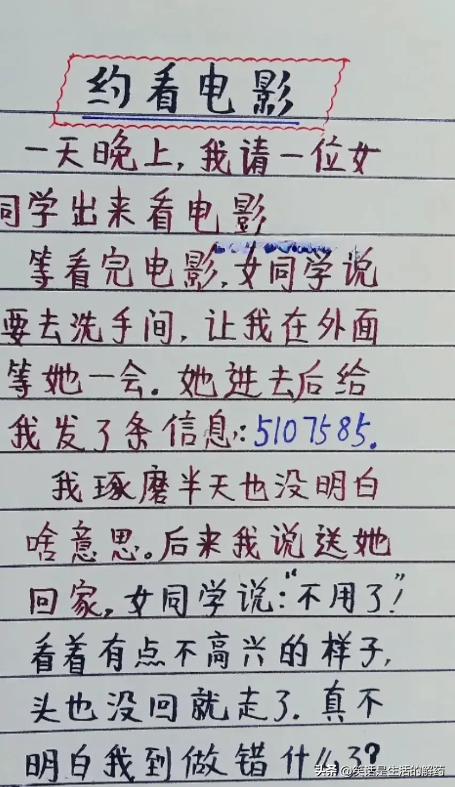 约看电影
一天晚上，我请一位女
同学出来看电影
等看完电影，女同学说
要去洗手间，让我在外面
等她一会．她进去后给
我发了条信息：5107585．
我琢磨半天也没明白
啥意思。后来我说送她
回家，女同学说：“不用了！”
看着有点不高兴的样子，
头也没回就走了．真不
明白我到做错什么了？
头条@笑话是生活的解药